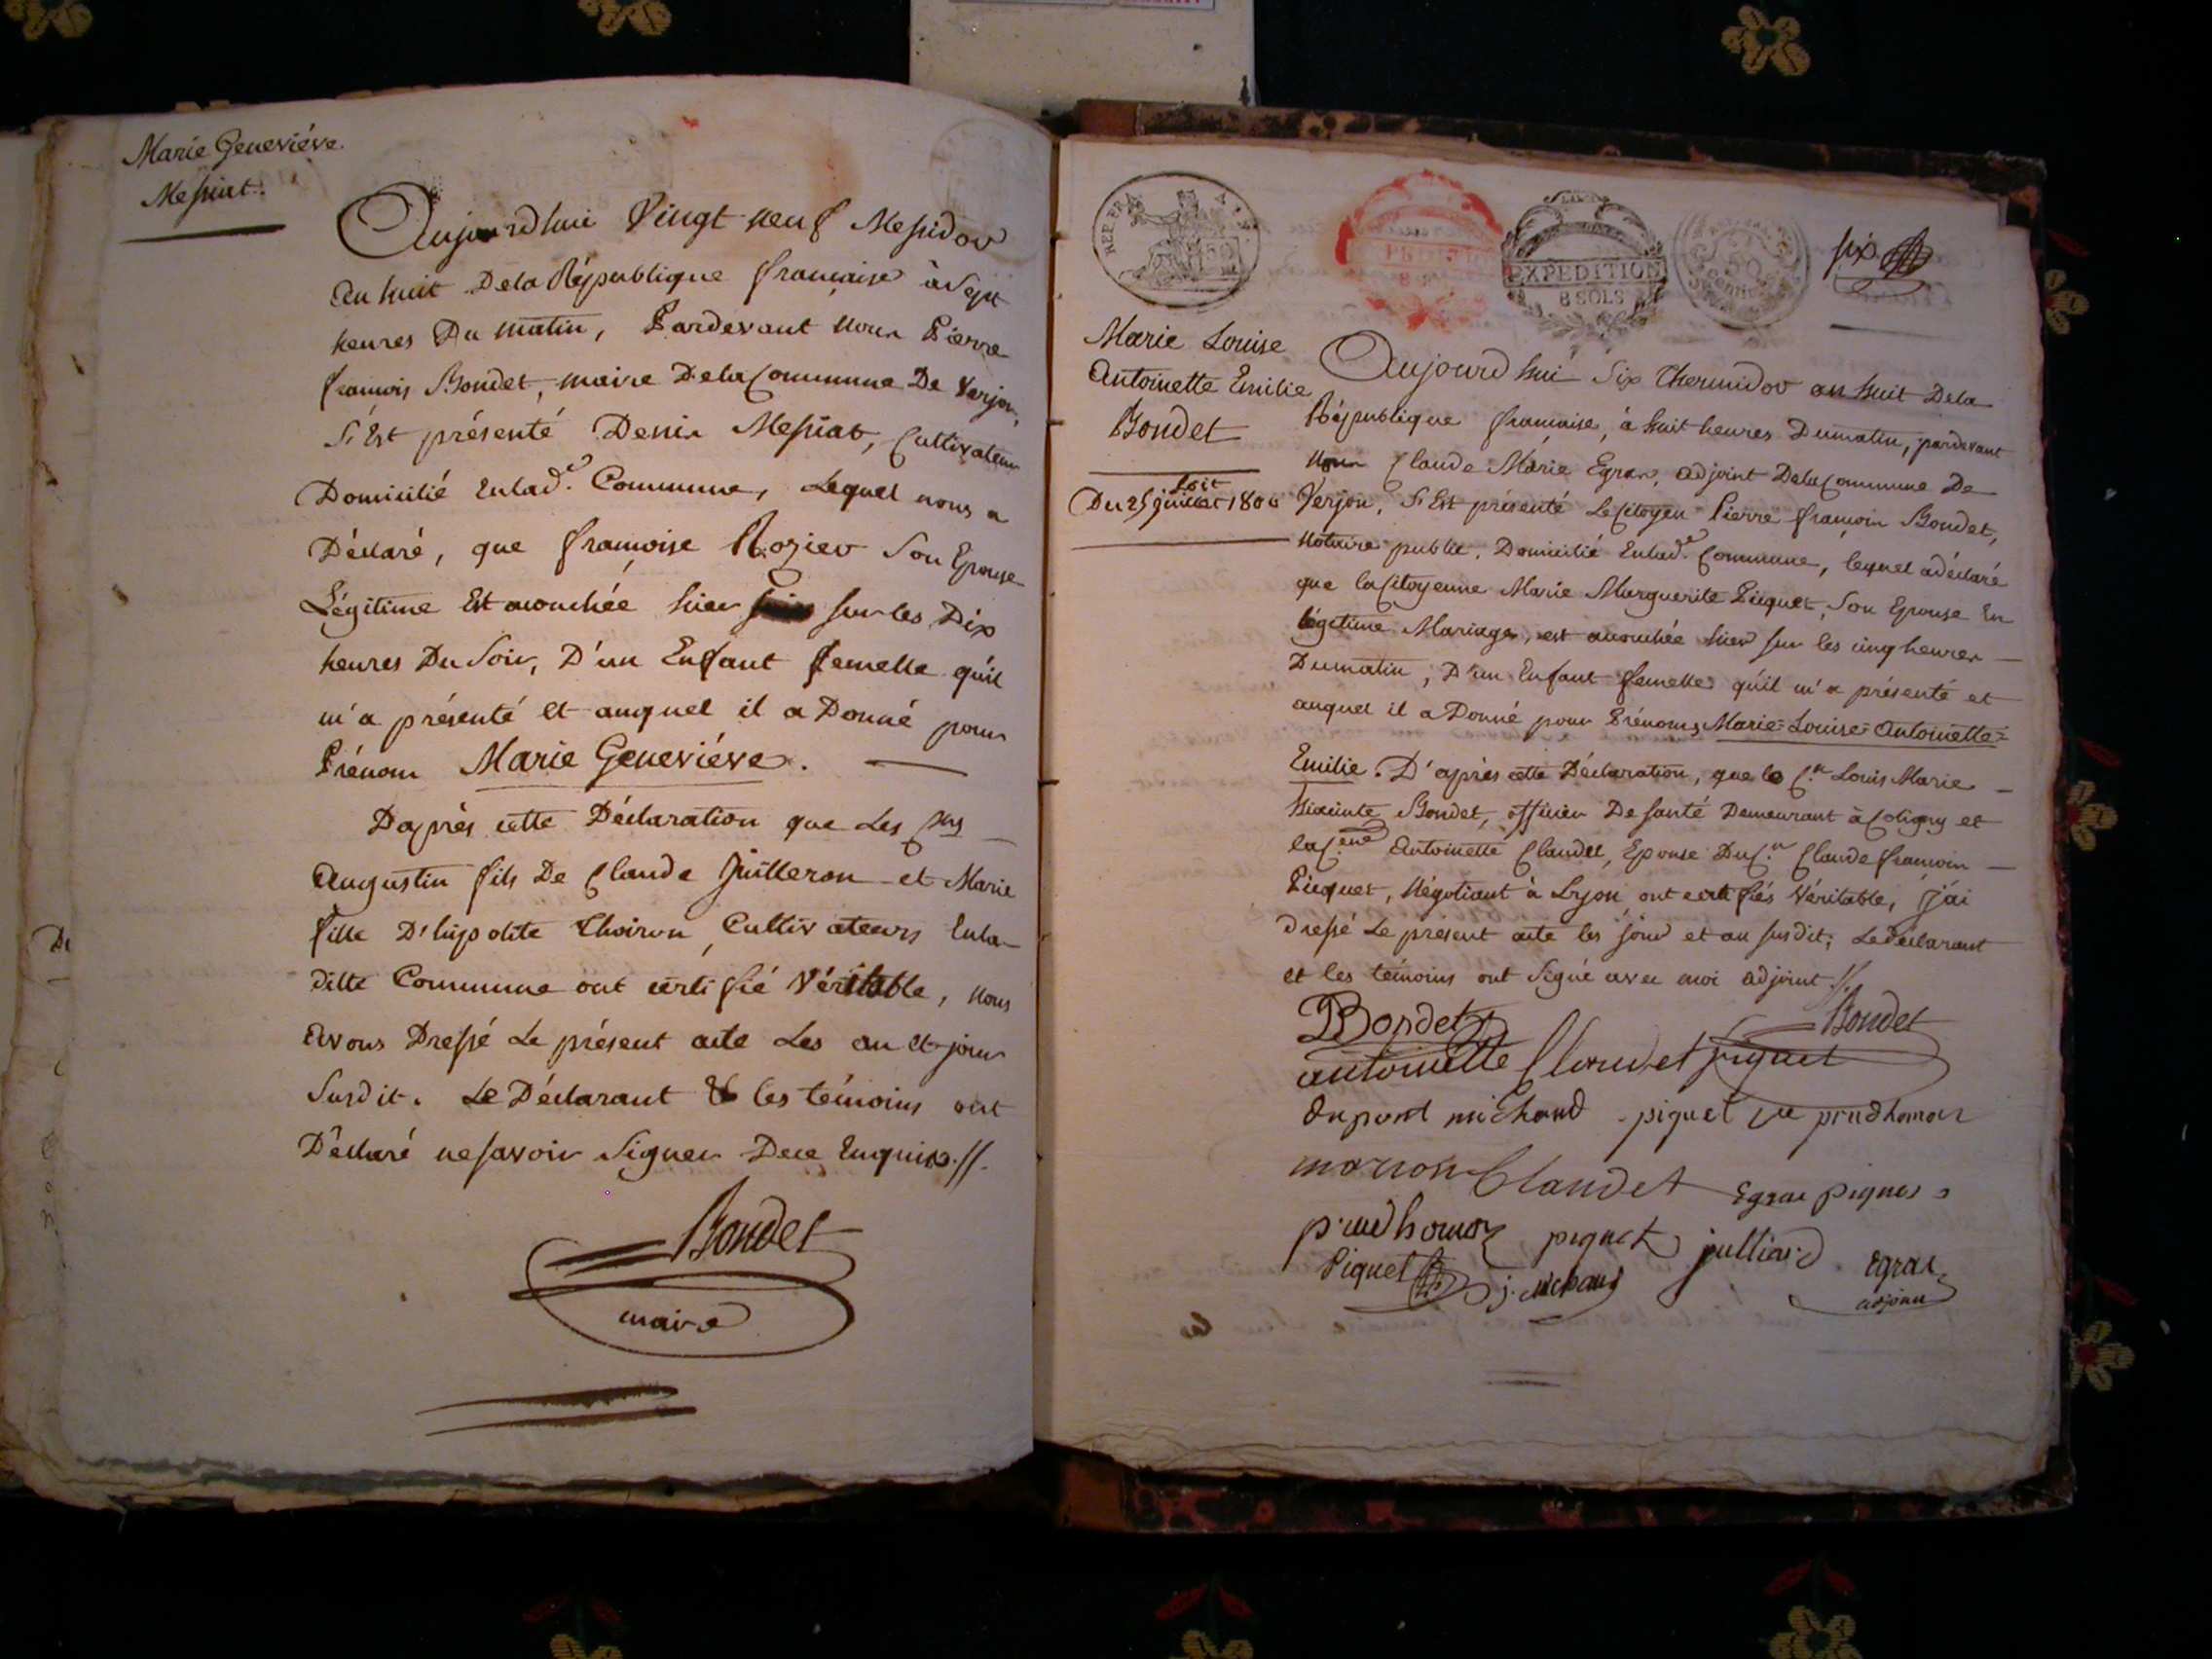 Marie Geneviéve
Messiat.
Aujourdhui Vingt neuf Messidor
an huit De la République française à Sept
heures Du matin, Pardevant nous Pierre
françois Bondet, maire De la Commune De Verjon,
S'Est présenté Denis Messiat, Cultivateur
Domicilié En lad.e Commune, Lequel nous a
Déclaré, que françoise Rozier Son Epouse
Légitime Est acouchée hier sur les Dix
heures Du Soir, D'un Enfant femelle qu'il
m'a présenté Et auquel il a Donné pour
Prénom Marie Geneviéve.
D'après cette Déclaration que Les C.ens
Augustin fils De Claude Guilleron et Marie
fille D'hipolite Thoiron Cultivateurs En la
ditte Commune ont certifié Véritable, nous
avons Dressé Le présent acte Les an et jour
Susdit. Le Déclarant & les témoins ont
Déclaré ne savoir Signer De ce Enquis.//.
Bondet
maire
REP. FRA.
50
EXPEDITION
8 SOLS
50
Centimes
six
Marie Louise
Antoinette Emilie
Bondet
soit
Du 25 juillet 1800
Aujourdhui Six Thermidor an huit De la
République française, à huit heures Du matin, pardevant
nous Claude Marie Egraz, adjoint De la Commune De
Verjon, S'Est présenté Le Citoyen Pierre françois Bondet,
Notaire public, Domicilié En lad.e Commune, lequel a déclaré
que la Citoyenne Marie Marguerite Picquet, Son Epouse En
légitime Mariage, est acouchée hier sur les cinq heures
Du matin, D'un Enfant femelle qu'il m'a présenté et
auquel il a Donné pour Prénoms Marie-Louise-Antoinette-
Emilie. D'après cette Déclaration, que le C.en Louis Marie
hiacinte Bondet, officier De Santé Demeurant à Coligny et
la C.ene Antoinette Claudet, Epouse Du C.en Claude françois
Picquet, Négotiant à Lyon ont certifiés Véritable, j'ai
dressé Le présent acte les jour et an susdit; Le déclarant
et les témoins ont Signé avec moi adjoint.//.
Bondet Bondet
antoinette Claudet piquet
Dupont michaud piquet prudhomme
marion Claudet Egraz piquet
prudhomme piquet julliard Egraz
Piquet j. michaud adjoint